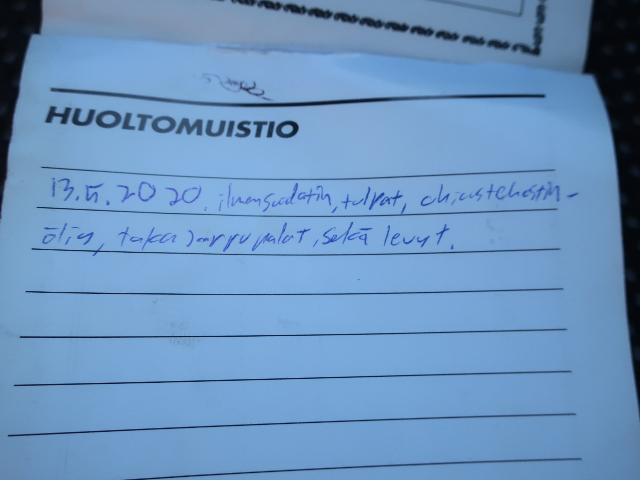 HUOLTOMUISTIO
13.5.2020. ilmansuodatin, tulpat, ohjaustehostin-
öljy, taka jarrupalat, sekä levyt.